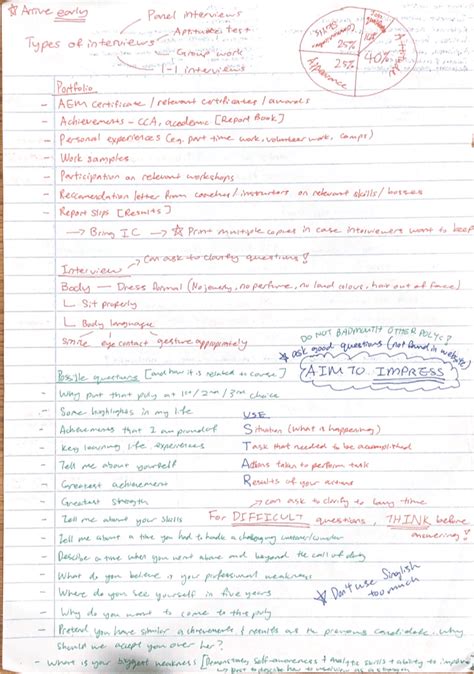 ☆ Arrive early
Types of interviews
Panel interviews
Aptitude test
Group work
1-1 interviews
Communication Skills 25%
10%
Attitude 40%
Appearance 25%
Portfolio
- AEM certificate / relevant certificates / awards
- Achievements - CCA, academic [Report Book]
- Personal experiences (eg. part time work, volunteer work, camps)
- Work samples
- Participation on relevant workshops
- Reccomendation letter from coaches / instructors on relevant skills / bosses
- Report Slips [Results]
→ Bring IC → ☆ Print multiple copies in case interviewers want to keep
Interview → Can ask to clarify questions!
Body — Dress (No jewelry, no perfume, no loud colours, hair out of face)
└ Sit properly
└ Body language
smile eye contact gesture appropriately
DO NOT BADMOUTH OTHER POLYS!
☆ ask good questions (not found in website)
AIM TO IMPRESS
Possible questions [and how it is related to course]
- Why put that poly as 1st / 2nd / 3rd choice
- Some highlights in my life
- Achievements that I am proud of
- Key learning life experiences
- Tell me about yourself
- Greatest achievement
- Greatest strength
USE
Situation (What is happening)
Task that needed to be accomplished
Actions taken to perform task
Results of your actions
→ can ask to clarify to buy time
- Tell me about your skills
For DIFFICULT questions, THINK before answering!
- Tell me about a time you had to handle a challenging customer/
- Describe a time when you went above and beyond the call of duty
- What do you believe is your professional weakness
- Where do you see yourself in five years
☆ Don't use Singlish too much
- Why do you want to come to this poly
- Pretend you have similar achievements & results as the previous candidate. Why should we accept you over her?
- What is your biggest weakness [Demonstrates self-awareness & analytic skills & ability to improve